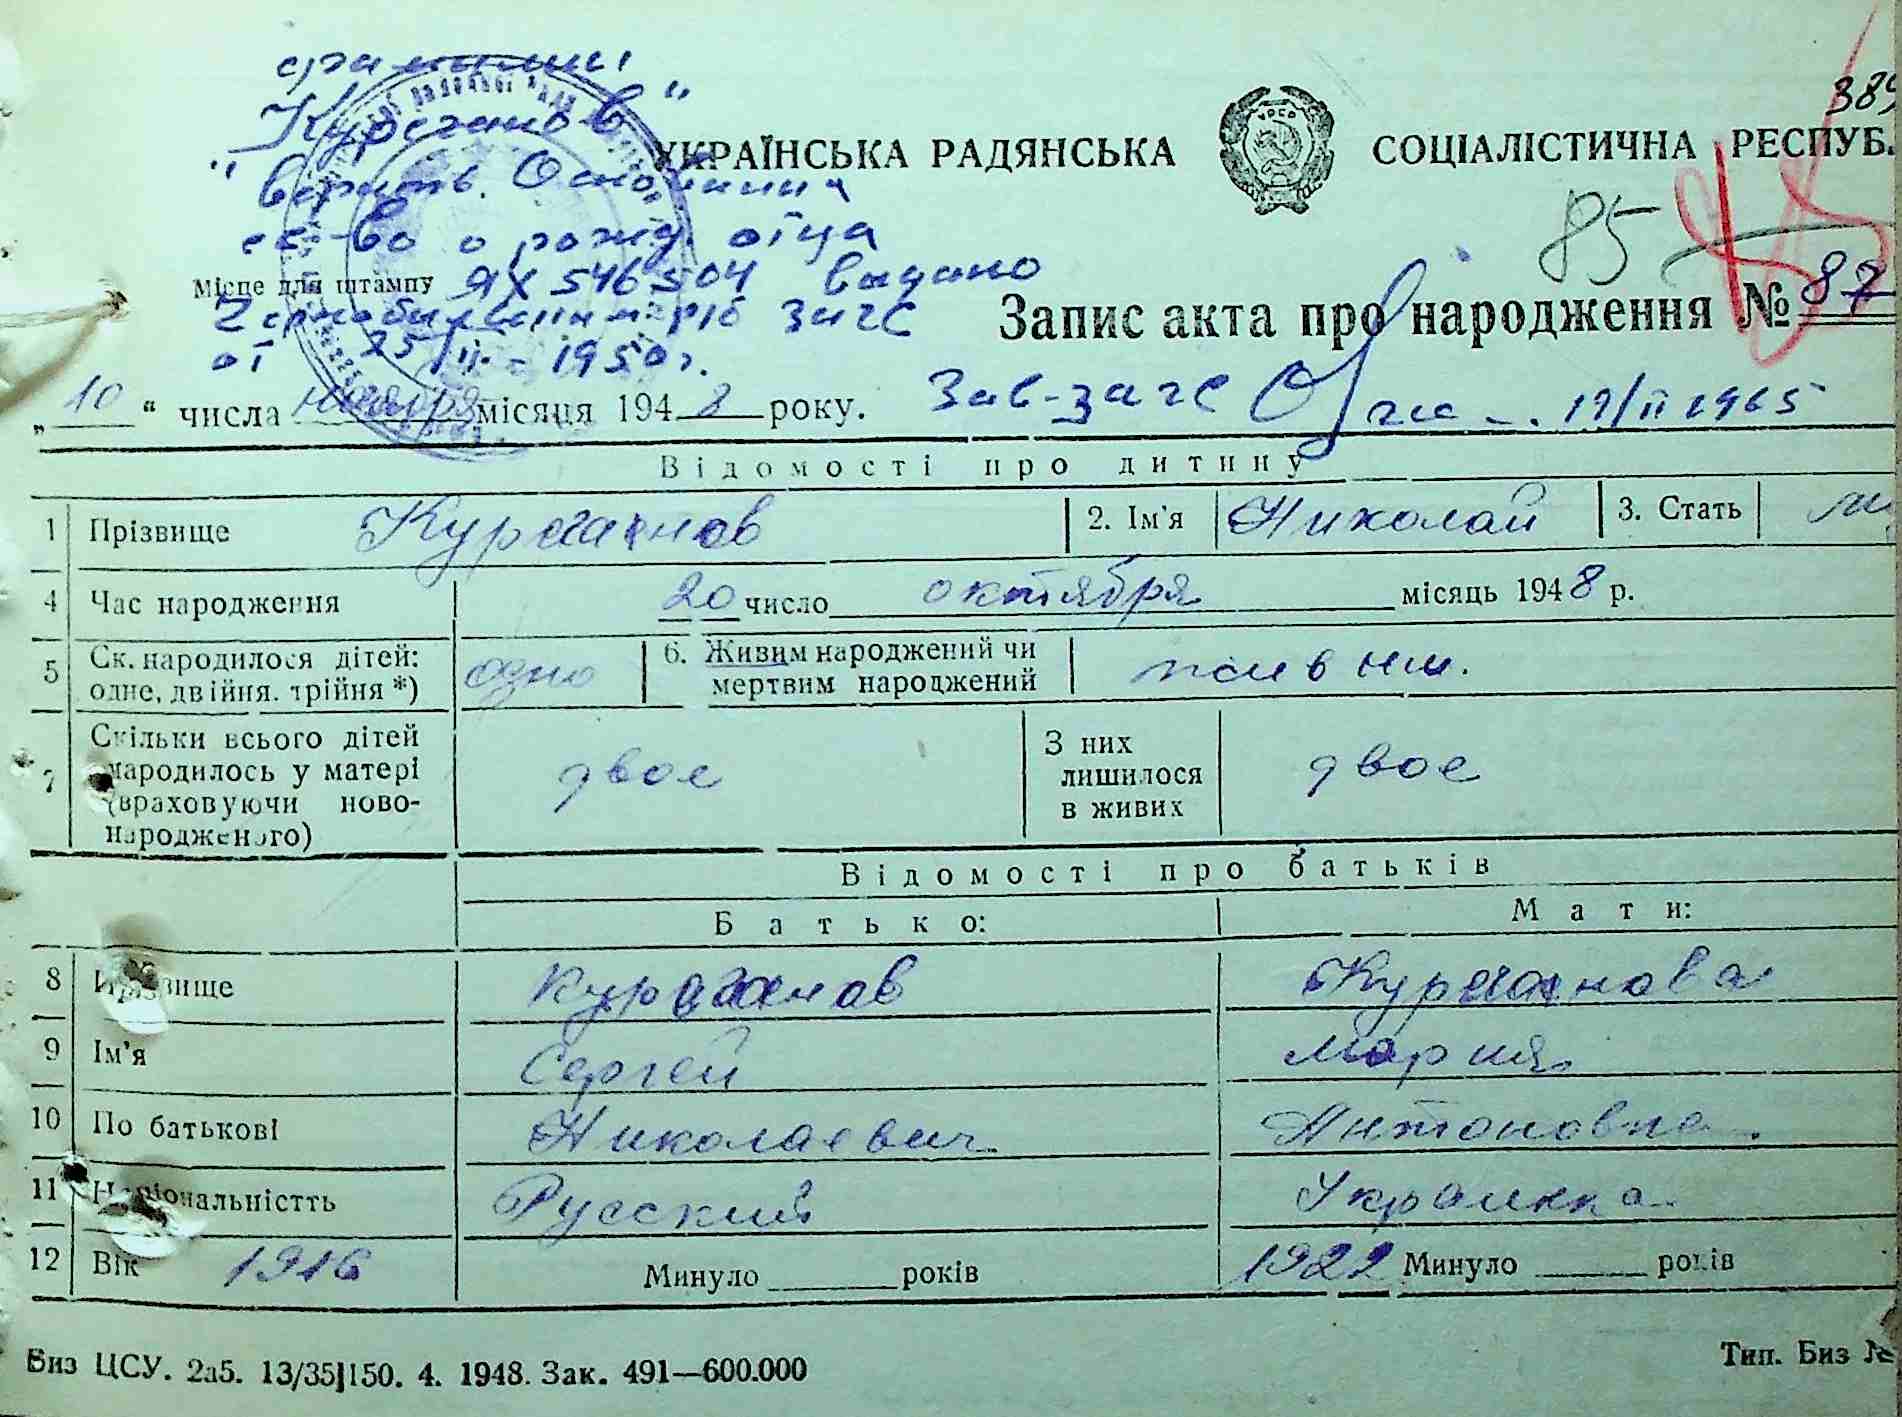 "Курганов"
верить. Основания
св-во о рожд. отца
Місце для штампу ЯХ 546504 выдано
загс
от 25/II - 1950 г.
389
УКРАЇНСЬКА РАДЯНСЬКА СОЦІАЛІСТИЧНА РЕСПУБ
85
Запис акта про народження № 87
„10“ числа ноября місяця 1948 року.
Зав-загс 17/II 1965
Відомості про дитину
1 Прізвище Курганов 2. Ім'я Николай 3. Стать
4 Час народження 20 число октября місяць 1948 р.
5 Ск. народилося дітей: одно 6. Живим народжений чи живым.
одне, двійня. трійня *) мертвим народжений
7 Скільки всього дітей народилось у матері (враховуючи ново-народженого) двое З них лишилося в живих двое
Відомості про батьків
Батько: Мати:
8 Прізвище Курганов Курганова
9 Ім'я Сергей Мария
10 По батькові Николаевич Антоновна
11 Національністть Русский Украинка
12 Вік 1916 Минуло років 1922 Минуло років
Биз ЦСУ. 2а5. 13/35 150. 4. 1948. Зак. 491—600.000 Тип. Биз №